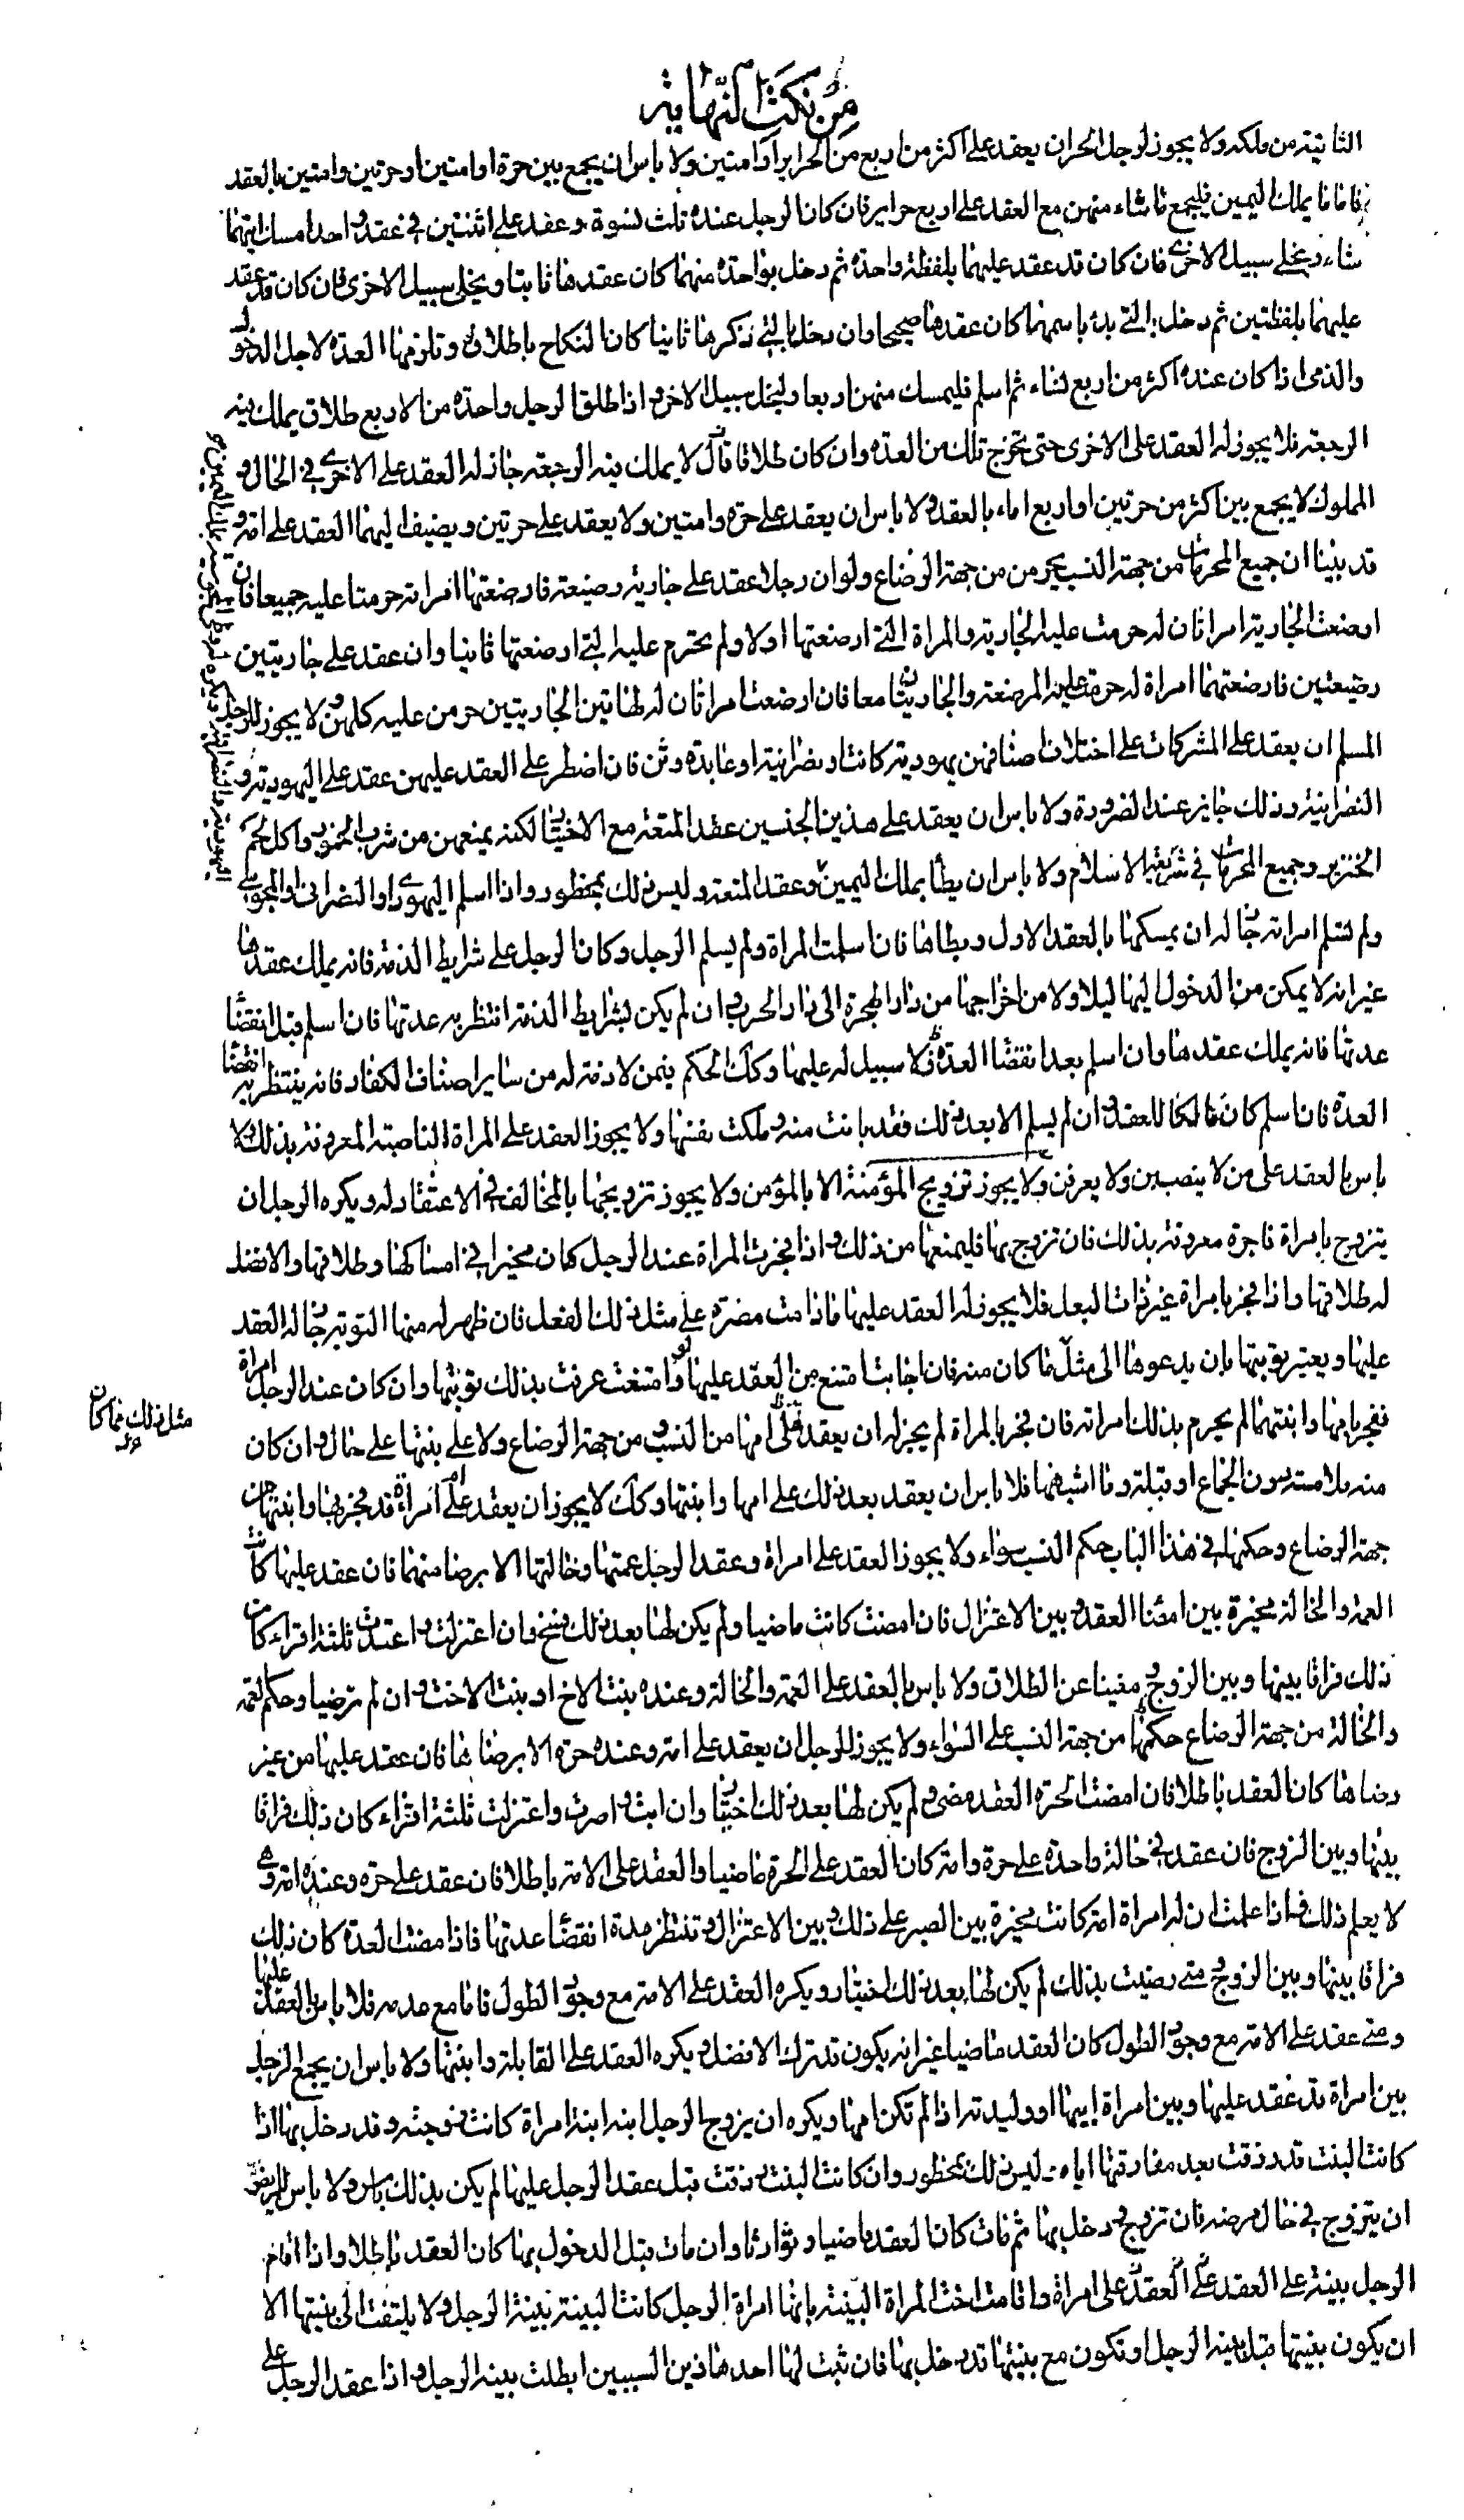 من نكت النهاية
الثانية من ملكه ولا يجوز لرجل الحر ان يعقد على اكثر من اربع من الحراير او امتين ولا باس ان يجمع بين حرة وامتين او حرتين وامتين بالعقد
فاما ما يملك اليمين فليجمع ما شاء منهن مع العقد على اربع حراير فان كان الرجل عنده ثلث نسوة وعقد على اثنتين في عقد واحد امسك ايتهما
شاء ويخلى سبيل الاخرى فان كان قد عقد عليهما بلفظة واحدة ثم دخل بواحدة منهما كان عقدها ثابتا ويخلى سبيل الاخرى فان كان قد عقد
عليهما بلفظتين ثم دخل بالتي بدء باسمها كان عقدها صحيحا وان دخل بالتي ذكرها ثانيا كان النكاح باطلا وتلزمها العدة لاجل الدخول
والذمى اذا كان عنده اكثر من اربع نساء ثم اسلم فليمسك منهن اربعا وليخل سبيل الاخرى واذا طلق الرجل واحدة من الاربع طلاق يملك فيه
الرجعة فلا يجوز له العقد على الاخرى حتى تخرج تلك من العدة وان كان طلاقا لا يملك فيه الرجعة جاز له العقد على الاخرى في الحال و
المملوك لا يجمع بين اكثر من حرتين او اربع اماء بالعقد ولا باس ان يعقد على حرة وامتين ولا يعقد على حرتين ويضيف اليهما العقد على امة و
قد بينا ان جميع المحرمات من جهة النسب يحرمن من جهة الرضاع ولو ان رجلا عقد على جارية رضيعة فارضعتها امراته حرمتا عليه جميعا فان
ارضعت الجارية امراتان له حرمت عليه الجارية والمراة التي ارضعتها اولا ولم تحرم عليه التي ارضعتها ثانيا وان عقد على جاريتين
رضيعتين فارضعتهما امراة له حرمت عليه المرضعة والجاريتان معا فان ارضعت امراتان له لهاتين الجاريتين حرمن عليه كلهن ولا يجوز للرجل
المسلم ان يعقد على المشركات على اختلاف اصنافهن يهودية كانت او نصرانية او عابدة وثن فان اضطر على العقد عليهن عقد على اليهودية و
النصرانية وذلك جايز عند الضرورة ولا باس ان يعقد على هذين الجنسين عقد المتعة مع الاختيار لكنه يمنعهن من شرب الخمور واكل لحم
الخنزير وجميع المحرمات في شريعة الاسلام ولا باس ان يطأ بملك اليمين وعقد المتعة وليس ذلك بمحظور واذا اسلم اليهودى او النصرانى او المجوسى
ولم تسلم امراته جاز له ان يمسكها بالعقد الاول ويطاها فان اسلمت المراة ولم يسلم الرجل وكان الرجل على شرايط الذمة فانه يملك عقدها
غير انه لا يمكن من الدخول اليها ليلا ولا من اخراجها من دار الهجرة الى دار الحرب وان لم يكن بشرايط الذمة انتظر به عدتها فان اسلم قبل انقضا
عدتها فانه يملك عقدها وان اسلم بعد انقضا العدة فلا سبيل له عليها وكك الحكم فيمن لا ذمة له من ساير اصناف الكفار فانه ينتظر به انقضا
العدة فان اسلم كان مالكا للعقد وان لم يسلم الا بعد ذلك فقد بانت منه وملكت نفسها ولا يجوز العقد على المراة الناصبة المعروفة بذلك ولا
باس بالعقد على من لا ينصبن ولا يعرفن ولا يجوز تزويج المؤمنة الا بالمؤمن ولا يجوز تزويجها بالمخالف في الاعتقاد له ويكره الرجل ان
يتزوج بامراة فاجرة معروفة بذلك فان تزوج بها فليمنعها من ذلك واذا فجرت المراة عند الرجل كان مخيرا في امساكها وطلاقها والافضل
له طلاقها واذا فجر بامراة غير ذات البعل فلا يجوز له العقد عليها مادامت مصرة على مثل ذلك الفعل فان ظهر له منها التوبة جاز له العقد
عليها ويعتبر توبتها بان يدعوها الى مثل ما كان منه فان اجابت امتنع من العقد عليها ولو امتنعت عرفت بذلك توبتها وان كان عند الرجل امراة
ففجر بامها وابنتها لم يحرم بذلك امراته فان فجر بالمراة لم يجز له ان يعقد على امها من النسب ومن جهة الرضاع ولا على بنتها على حال وان كان
منه ملامسة دون الجماع او قبلة وما اشبههما فلا باس ان يعقد بعد ذلك على امها وابنتها وكك لا يجوز ان يعقد على ام امراة قد فجر بها وابنتها من
جهة الرضاع وحكمها في هذا الباب حكم النسب سواء ولا يجوز العقد على امراة وعقد الرجل عمتها وخالتها الا برضا منهما فان عقد عليها كانت
العمة والخالة مخيرة بين امضا العقد وبين الاعتزال فان امضت كانت ماضيا ولم يكن لها بعد ذلك فسخ وان اعتزلت واعتدت ثلثة اقراء كان
ذلك فراقا بينها وبين الزوج ومغنيا عن الطلاق ولا باس بالعقد على العمة والخالة وعنده بنت الاخ او بنت الاخت وان لم ترضيا وحكم العمة
والخالة من جهة الرضاع حكمها من جهة النسب على السواء ولا يجوز للرجل ان يعقد على امة وعنده حرة الا برضاها فان عقد عليها من غير
رضاها كان العقد باطلا فان امضت الحرة العقد مضى ولم يكن لها بعد ذلك اختيار وان ابت واصرت واعتزلت ثلثة اقراء كان ذلك فراقا
بينها وبين الزوج فان عقد في حالة واحدة على حرة وامة كان العقد على الحرة ماضيا والعقد على الامة باطلا فان عقد على حرة وعنده امة وهى
لا يعلم ذلك فاذا علمت ان له امراة امة كانت مخيرة بين الصبر على ذلك وبين الاعتزال وتنتظر مدة انقضا عدتها فاذا مضت العدة كان ذلك
فراقا بينها وبين الزوج ومتى رضيت بذلك لم يكن لها بعد ذلك اختيار ويكره العقد على الامة مع وجود الطول فاما مع عدمه فلا باس بالعقد عليها
ومتى عقد على الامة مع وجود الطول كان العقد ماضيا غير انه يكون قد ترك الافضل ويكره العقد على القابلة وابنتها ولا باس ان يجمع الرجل
بين امراة قد عقد عليها وبين امراة ابيها او وليدته اذا لم تكن امها ويكره ان يزوج الرجل ابنه ابنة امراة كانت زوجته وقد دخل بها اذا
كانت البنت قد رزقت بعد مفارقتها اياه وليس ذلك بمحظور وان كانت البنت رزقت قبل عقد الرجل عليها لم يكن بذلك باس ولا باس للمريض
ان يتزوج في حال مرضه فان تزوج ودخل بها ثم مات كان العقد ماضيا وتوارثا وان مات قبل الدخول بها كان العقد باطلا واذا اقام
الرجل بينة على العقد على العقد على امراة واقامت اخت المراة البينة بانها امراة الرجل كانت البينة بينة الرجل ولا يلتفت الى بينتها الا
ان يكون بينتها قبل بينة الرجل او تكون مع بينتها قد دخل بها فان ثبت لها احد هاذين السببين ابطلت بينة الرجل واذا عقد الرجل على
مثل ذلك مما كان